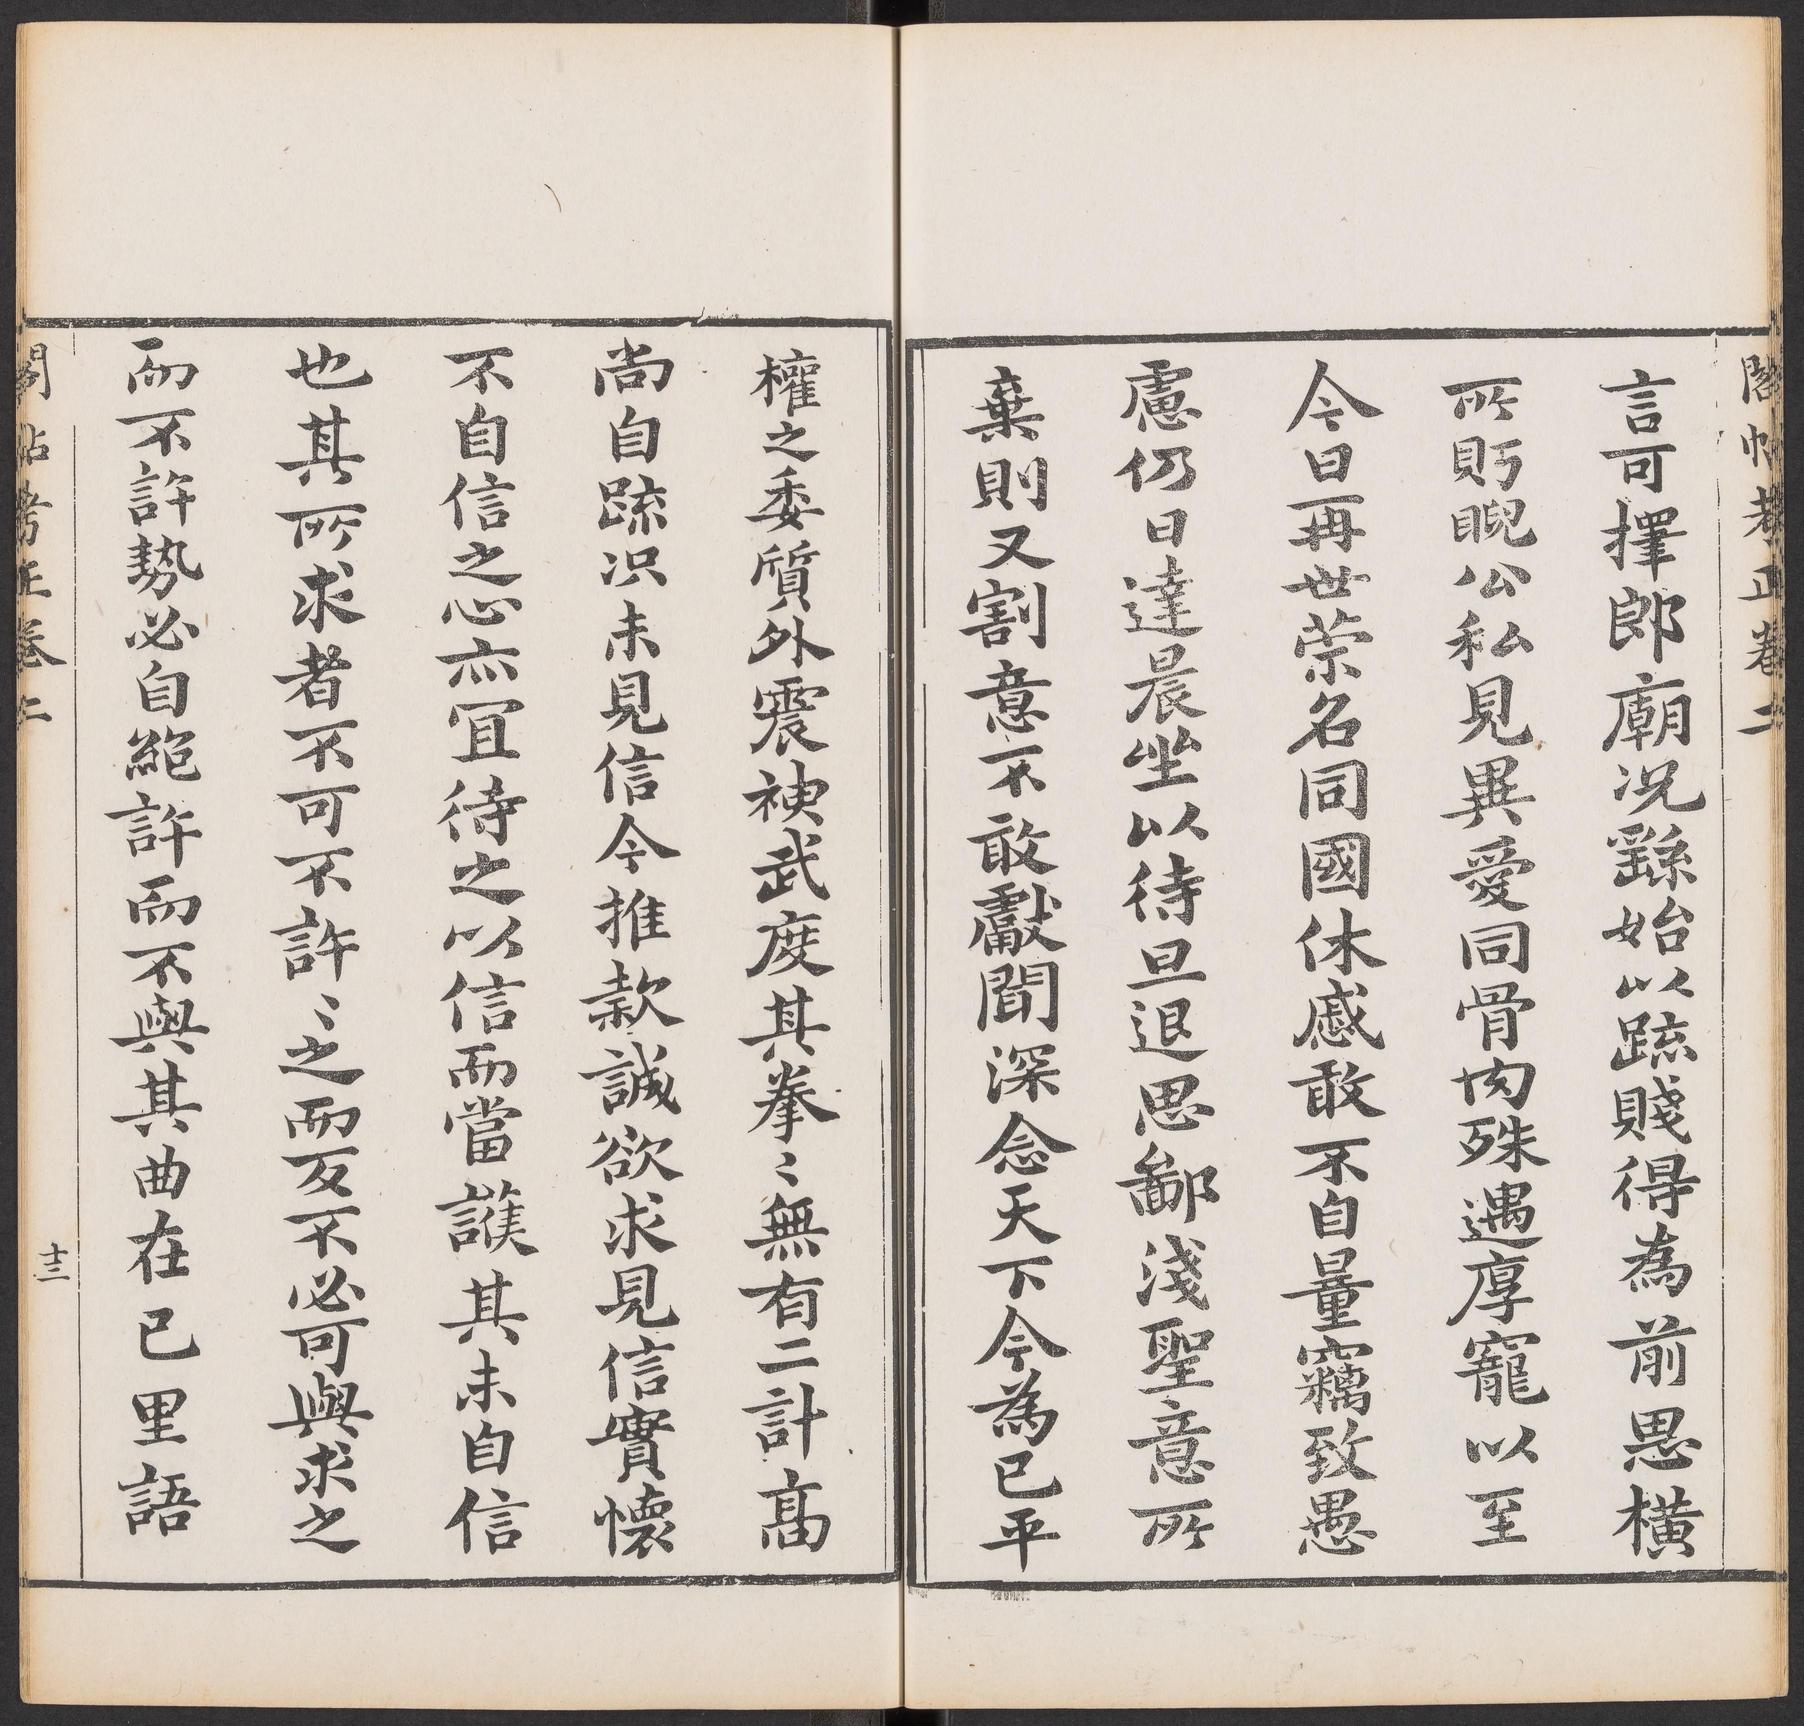 閣帖考正卷二
權之委質外震神武度其拳〻無有二計髙
尚自疏况未見信今推款誠欲求見信實懷
不自信之心亦冝待之以信而當護其未自信
也其所求者不可不許〻之而反不必可與求之
而不許勢必自絕許而不與其曲在己里語
閣帖考正卷二
十三
言可擇郎廟况繇始以疏賤得為前恩橫
所眄睨公私見異愛同骨肉殊遇厚寵以至
今日再世荣名同國休慼敢不自量竊致愚
慮仍日達晨坐以待旦退思鄙淺聖意所
棄則又割意不敢獻聞深念天下今為已平